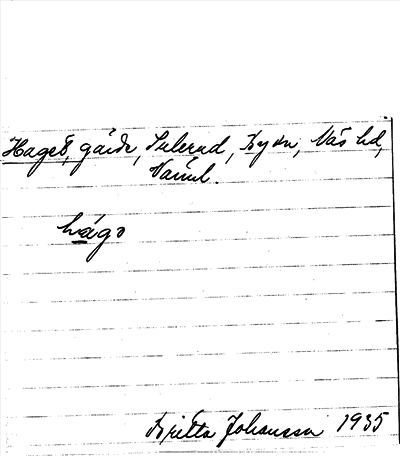 Haget, gärde, Sulerud, By sn, Näs hd,
Värml.
hågo
Britta Johansson 1935